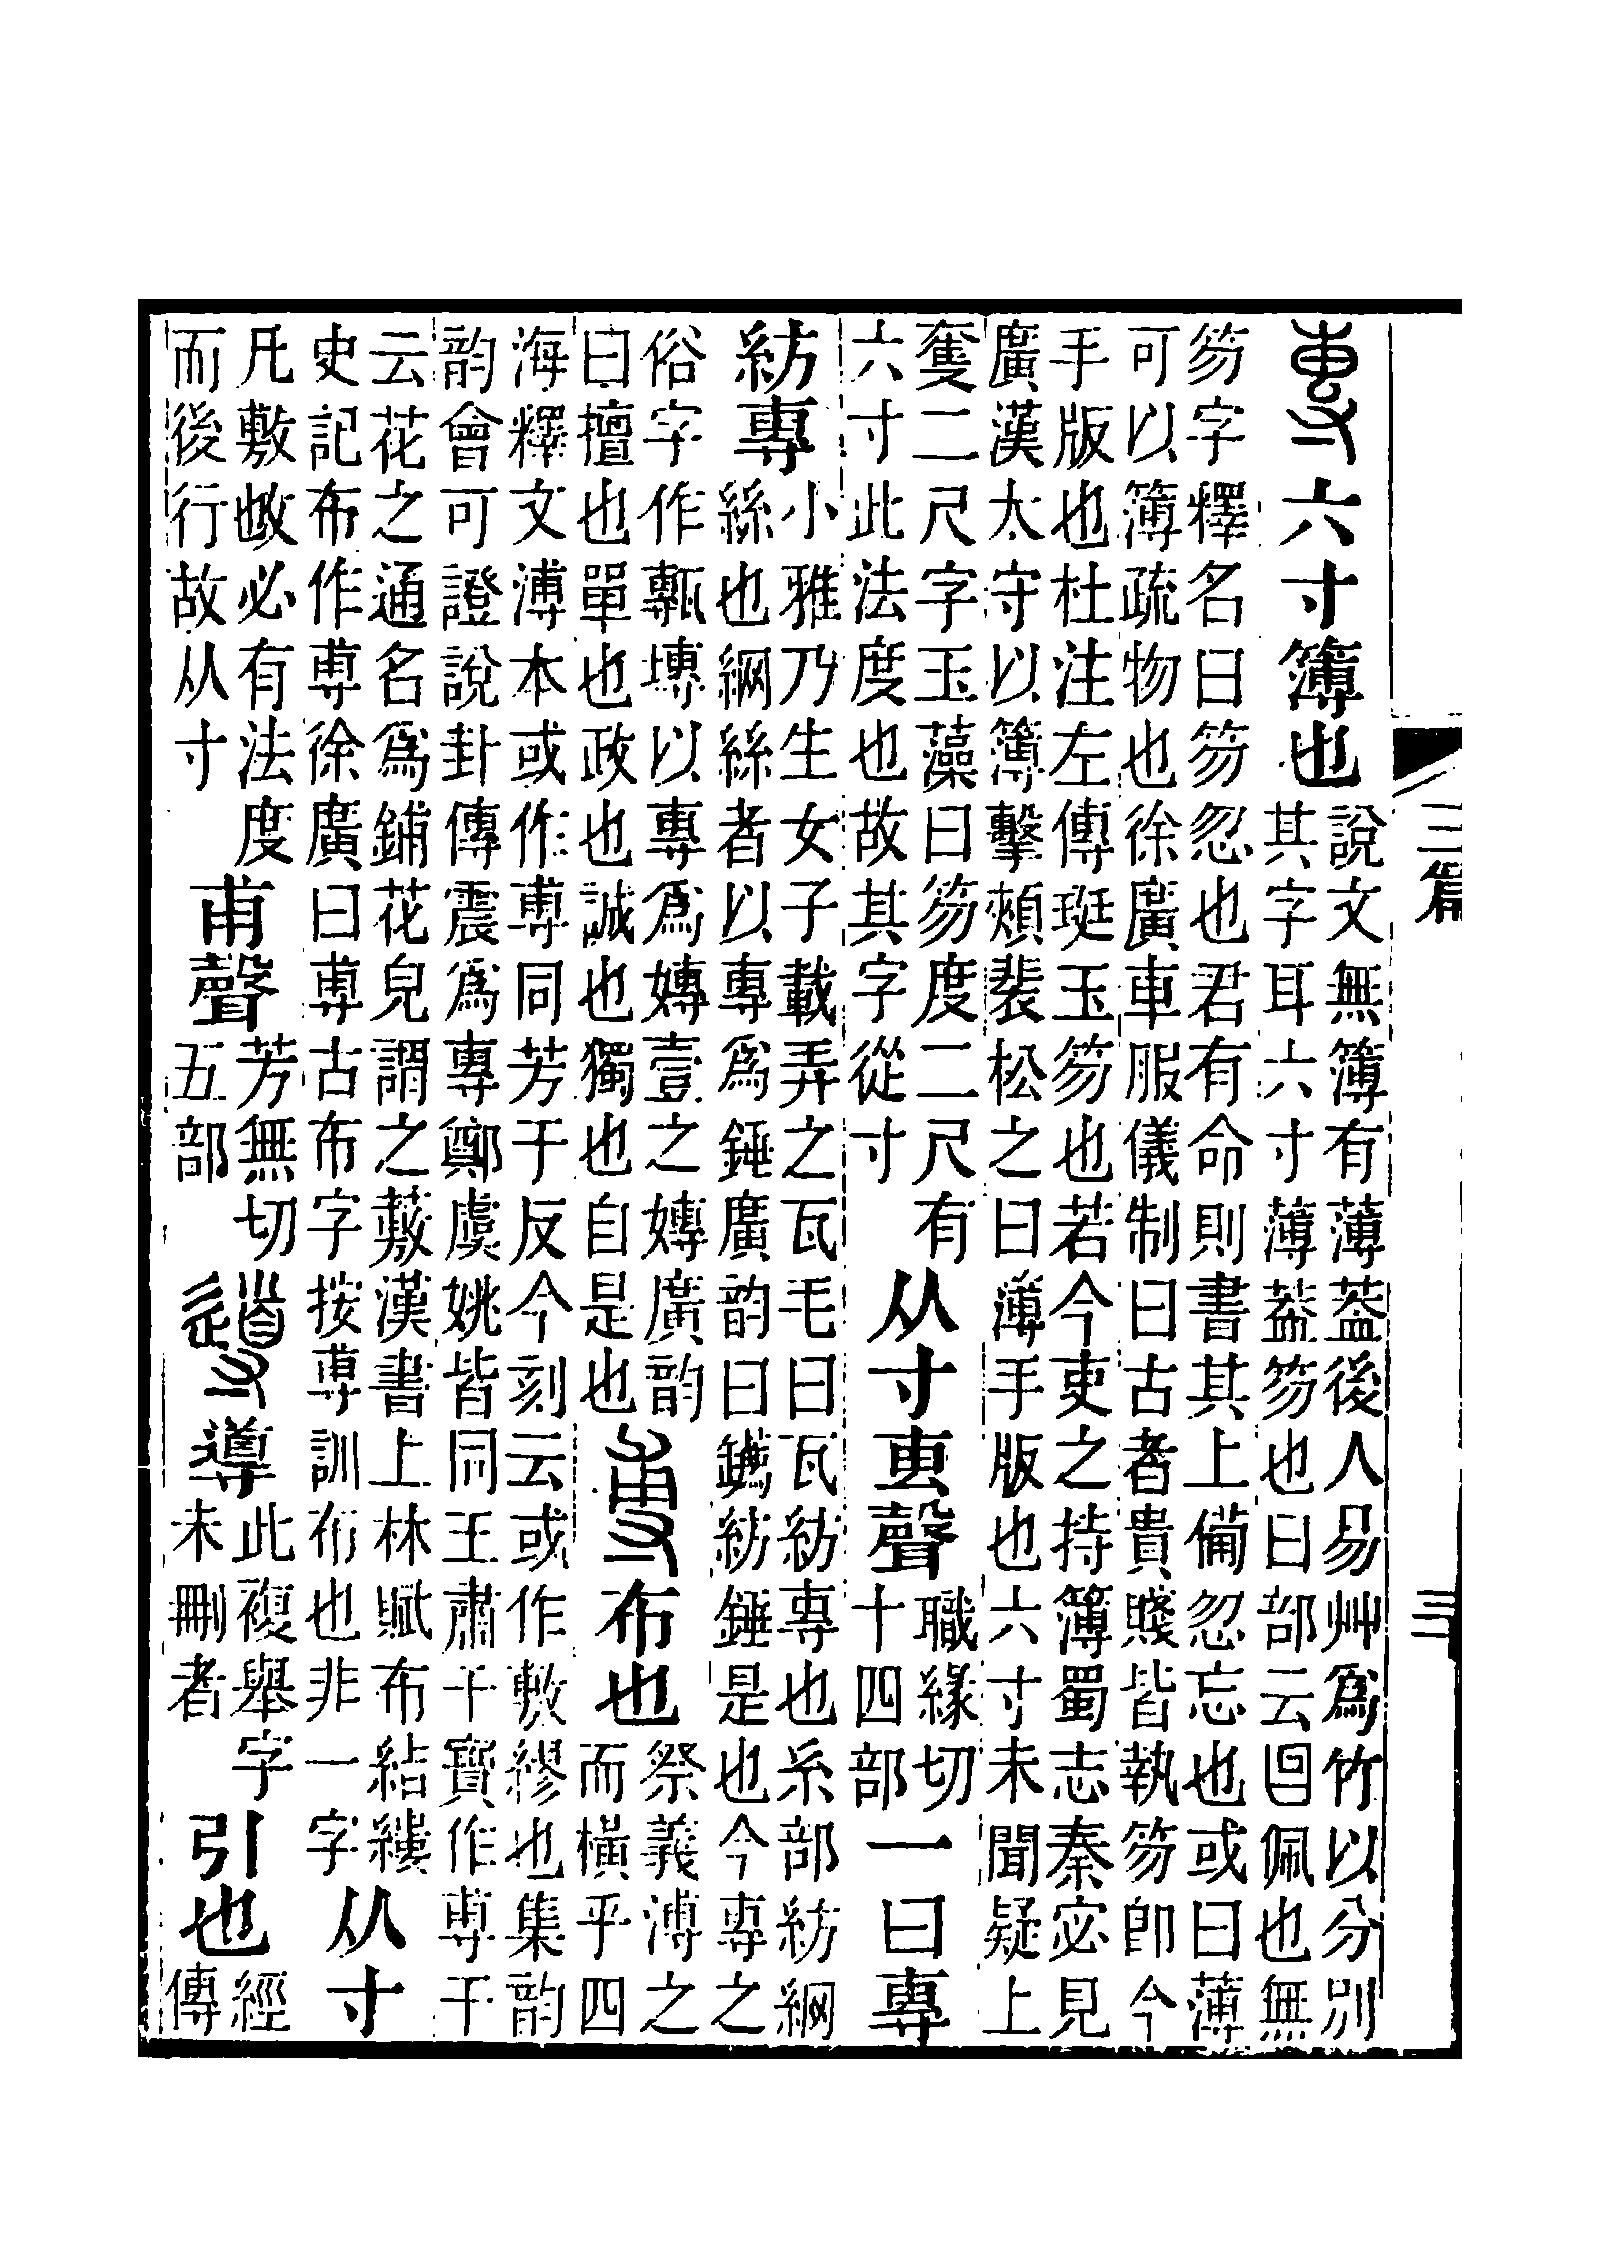 專六寸簿也說文無簿有薄葢後人易艸爲竹以分別
其字耳六寸薄葢笏也曰部云㫚佩也無
笏字釋名曰笏忽也君有命則書其上備忽忘也或曰薄
可以簿疏物也徐廣車服儀制曰古者貴賤皆執笏卽今
手版也杜注左傳珽玉笏也若今吏之持簿蜀志秦宓見
廣漢太守以簿擊頰裴松之曰薄手版也六寸未聞疑上
奪二尺字玉藻曰笏度二尺有
六寸此法度也故其字從寸
从寸叀聲職緣切
十四部
一曰專
紡專小雅乃生女子載弄之瓦毛曰瓦紡專也糸部紡網
絲也網絲者以專爲錘廣韵曰䥥紡錘是也今專之
俗字作甎塼以專爲嫥壹之嫥廣韵
曰擅也單也政也誠也獨也自是也
尃布也祭義溥之
而橫乎四
海釋文溥本或作尃同芳于反今刻云或作敷繆也集韵
韵會可證說卦傳震爲專鄭虞姚皆同王肅干寶作尃干
云花之通名爲鋪花皃謂之藪漢書上林賦布結縷
史記布作尃徐廣曰尃古布字按尃訓布也非一字
从寸
凡敷必有法度
而後行故从寸
甫聲芳無切
五部
導導此複舉字
未刪者
引也經
傳
三篇
三